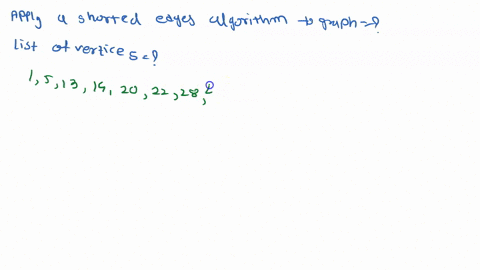 Apply a shorted edges algorithm → graph = ?
List of vertices = ?
1, 5, 13, 19, 20, 22, 28,